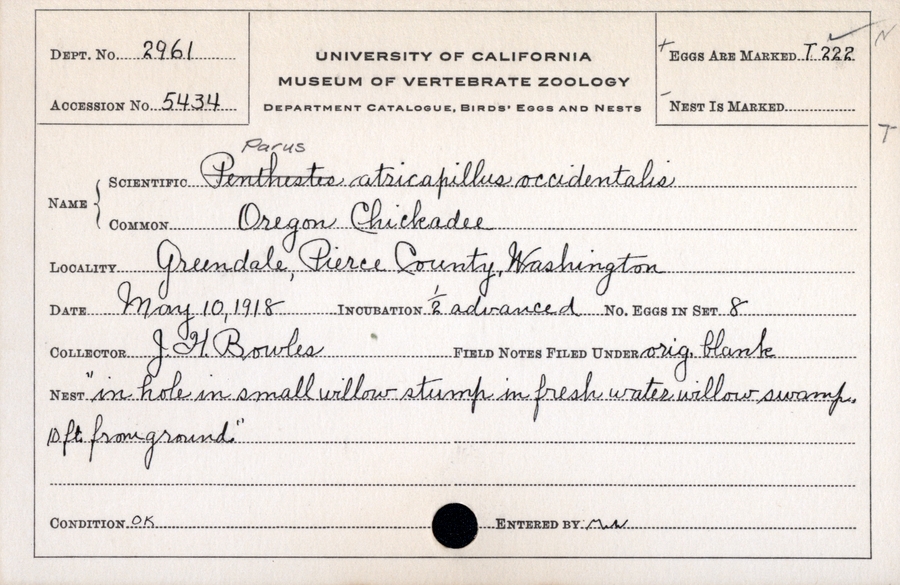 DEPT. No. 2961
ACCESSION No. 5434
UNIVERSITY OF CALIFORNIA
MUSEUM OF VERTEBRATE ZOOLOGY
DEPARTMENT CATALOGUE, BIRDS' EGGS AND NESTS
+ EGGS ARE MARKED T 222 ✓ N
- NEST IS MARKED T
Parus
NAME { SCIENTIFIC Penthestes atricapillus occidentalis
COMMON Oregon Chickadee
LOCALITY Greendale, Pierce County, Washington
DATE May 10, 1918 INCUBATION 1/2 advanced No. EGGS IN SET 8
COLLECTOR J. H. Bowles FIELD NOTES FILED UNDER orig. blank
NEST "in hole in small willow stump in fresh water willow swamp,
10 ft. from ground."
CONDITION OK ENTERED BY